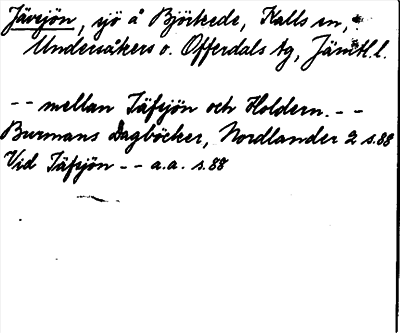 Jävsjön, sjö å Björkede, Kalls sn,
Undersåkers o. Offerdals tg, Jämtl. l.
-- mellan Täfsjön och Holdern. --
Burmans Dagböcker, Nordlander 2 s. 88
Vid Täfsjön -- a.a. s. 88